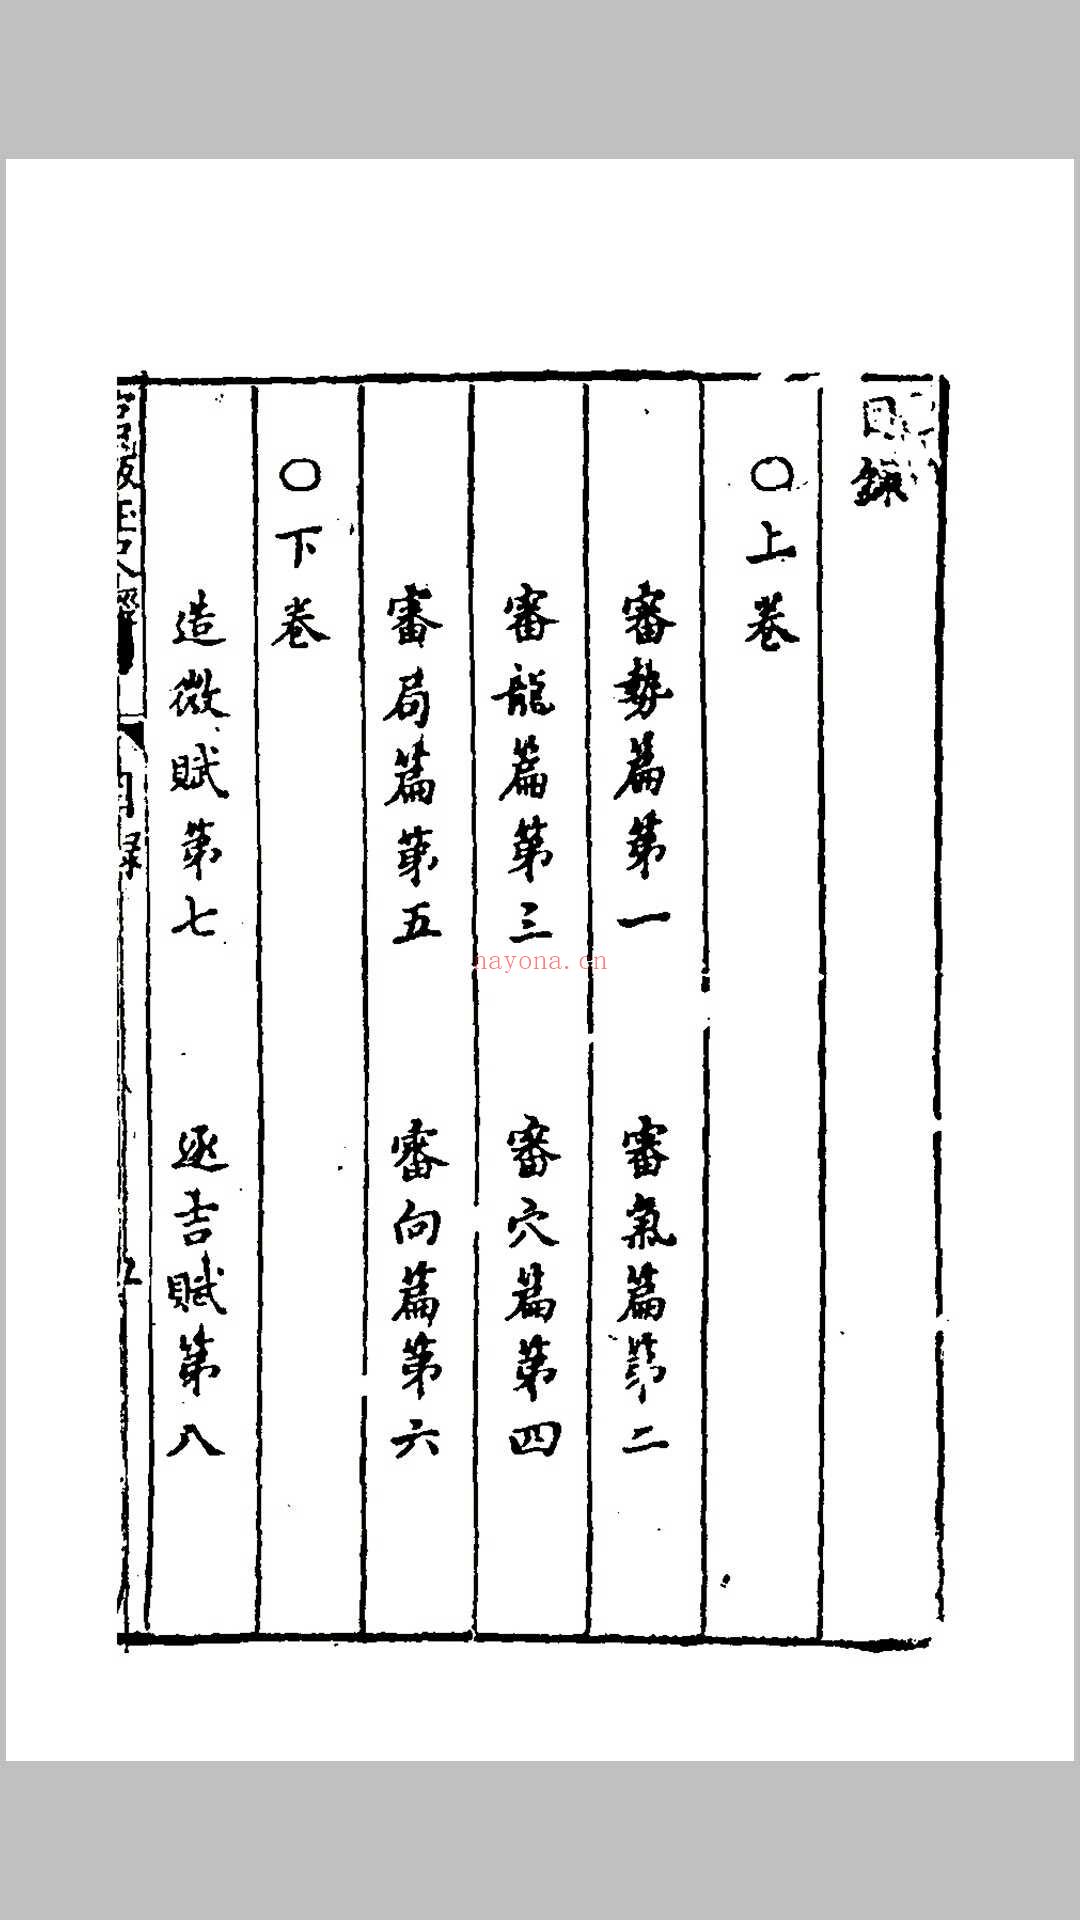 目錄
○上卷
審勢篇第一 審氣篇第二
審龍篇第三 審穴篇第四
審局篇第五 審向篇第六
○下卷
造微賦第七 逐吉賦第八
官版玉尺經
目錄
hayona.cn